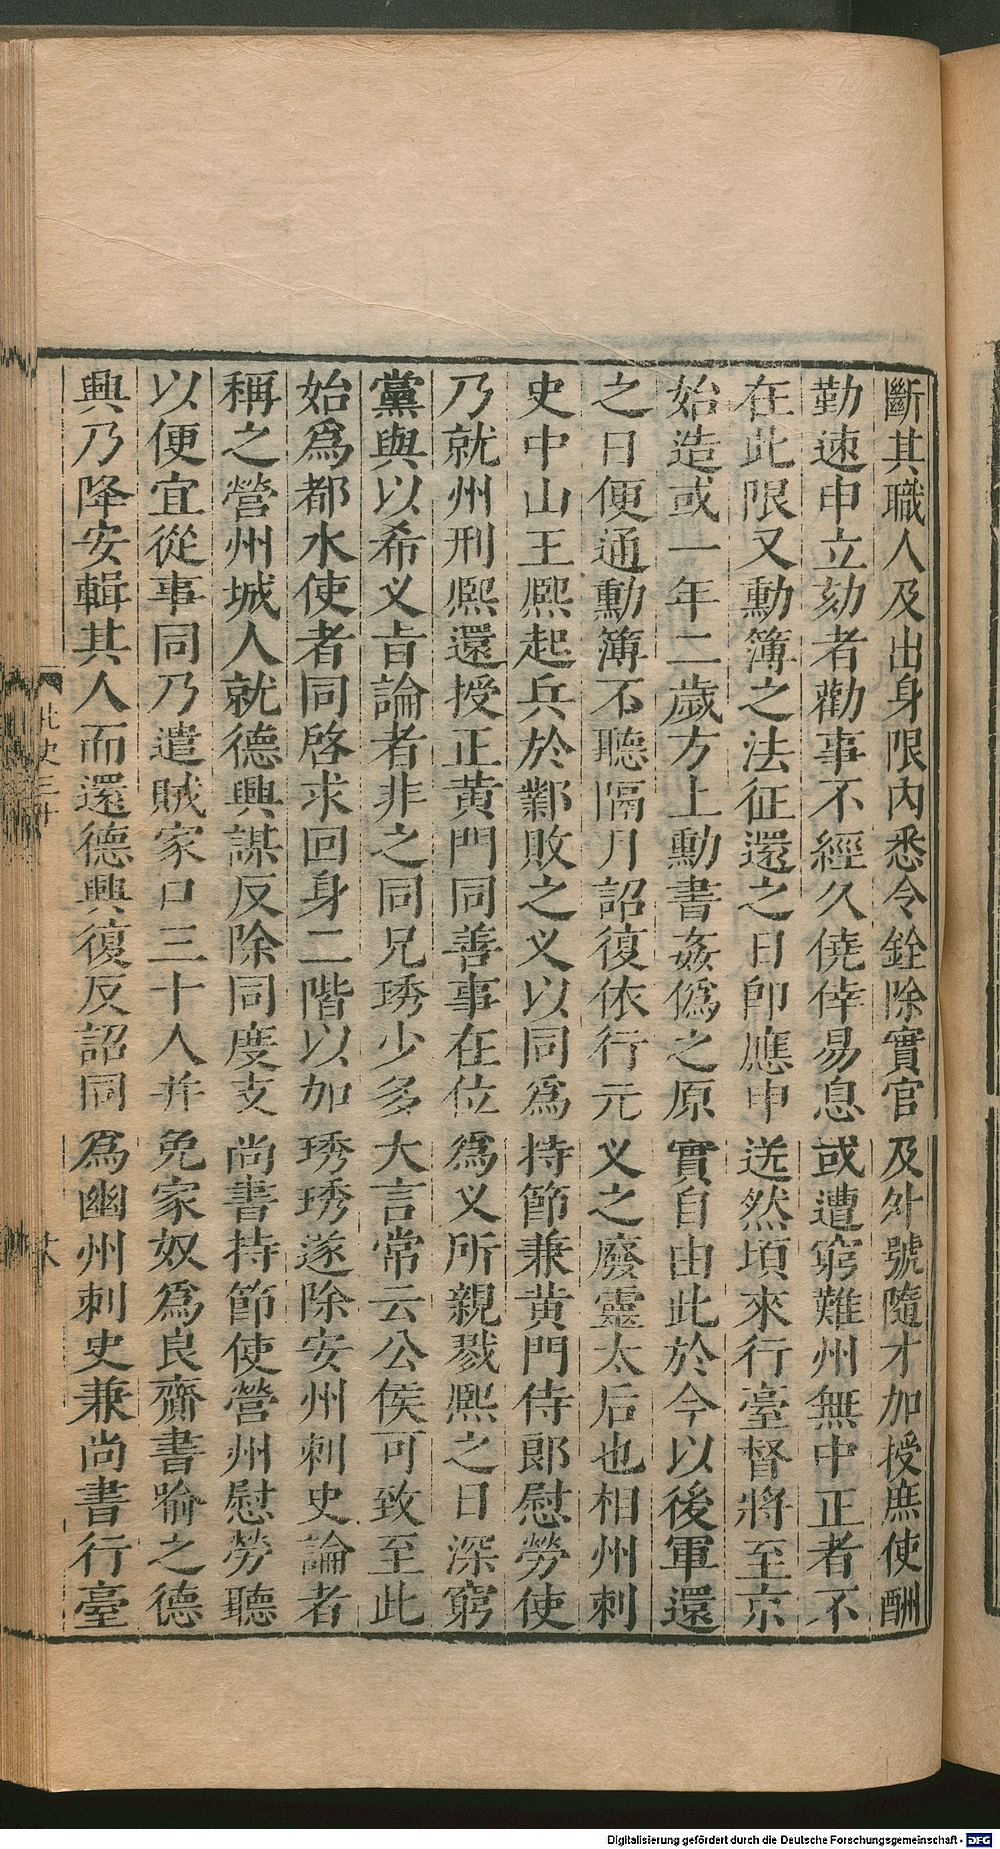 斷其職人及出身限內悉令銓除實官及外號隨才加授庶使酬
勤速申立劾者勸事不經久僥倖易息或遭窮難州無中正者不
在此限又勳簿之法征還之日卽應申送然頃來行臺督將至京
始造或一年二歲方上勳書姦僞之原實自由此於今以後軍還
之日便通勳簿不聽隔月詔復依行元乂之廢靈太后也相州刺
史中山王熙起兵於鄴敗之乂以同爲持節兼黄門侍郎慰勞使
乃就州刑熙還授正黄門同善事在位爲义所親戮熙之日深窮
黨與以希义旨論者非之同兄琇少多大言常云公侯可致至此
始爲都水使者同啓求回身二階以加琇琇遂除安州刺史論者
稱之營州城人就德興謀反除同度支尚書持節使營州慰勞聽
以便宜從事同乃遣賊家口三十人并免家奴爲良齎書喻之德
興乃降安輯其人而還德興復反詔同爲幽州刺史兼尚書行臺
北史三十
Digitalisierung gefördert durch die Deutsche Forschungsgemeinschaft - DFG